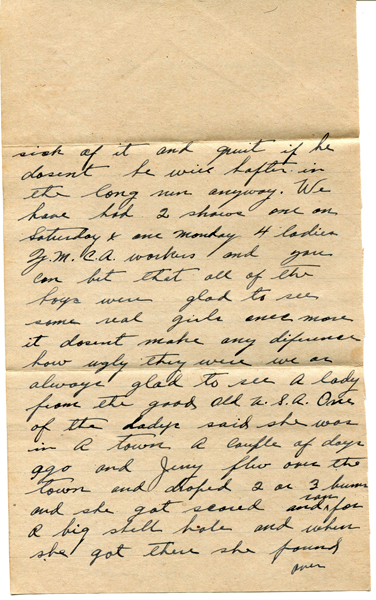 sick of it and quit if he
dosent he will hafter in
the long run anyway. We
have had 2 shows one on
Saturday & one Monday 4 ladies
Y.M.C.A. workers and you
can bet that all of the
boys were glad to see
some real girls once more
it dosent make any diference
how ugly they were we are
always glad to see a lady
from the good old U.S.A. One
of the ladys said she was
in a town a couple of days
ago and Jerry flew over the
town and droped 2 or 3 bums
and she got scared and ran for
a big shell hole and when
she got there she found
over